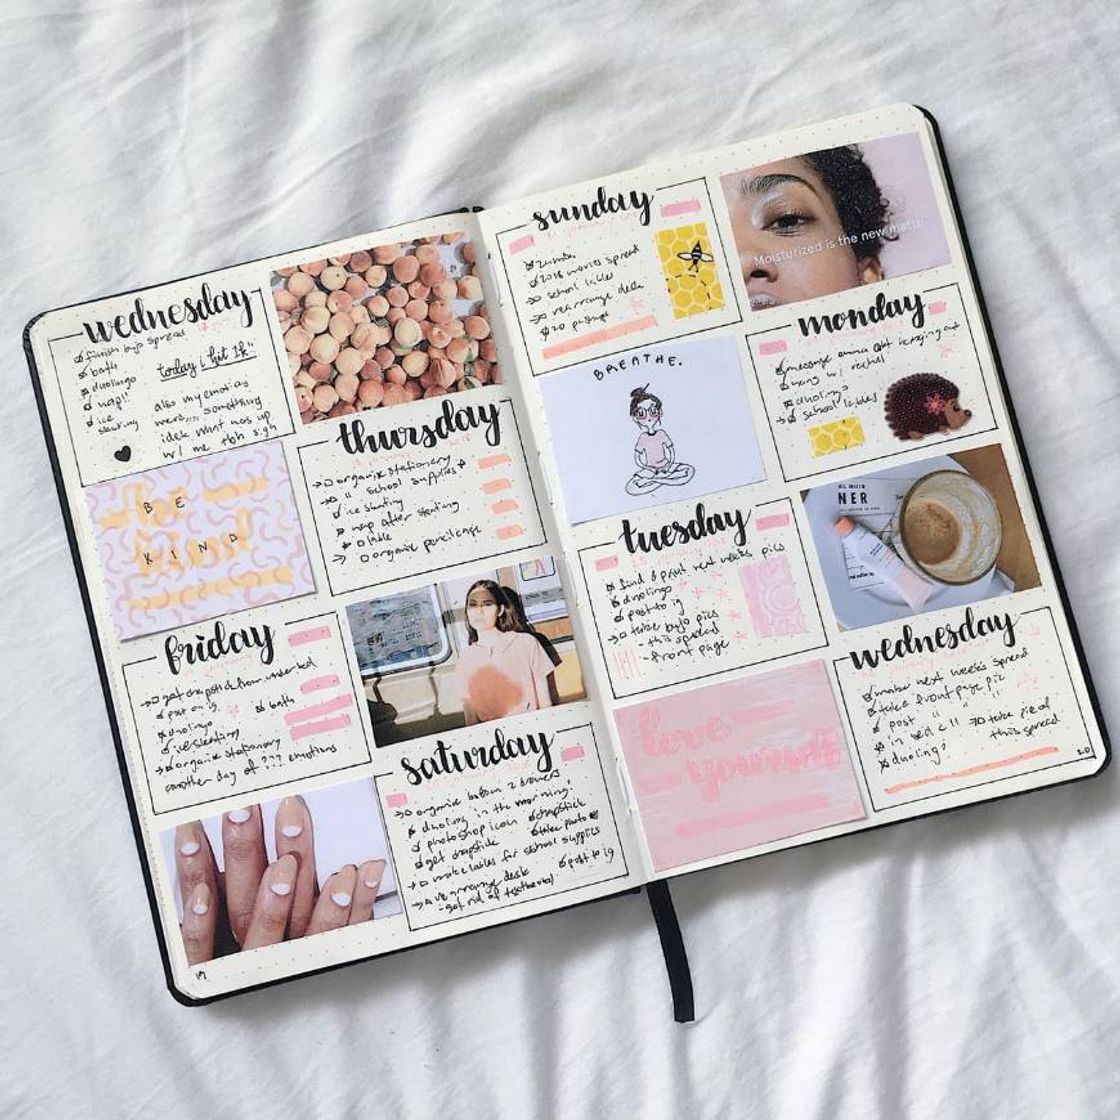 wednesday
finish bujo spread
bath
duolingo
nap!!
ice
skating
today i hit 1k
also my emotions
were... something
idek what was up
w/ me tbh sigh
BE
KIND
thursday
organize stationery
" school supplies
ice skating
nap after skating
lable
organize pencil case
friday
get chapstick from under bed
post on ig
bath
duolingo
ice skating
organize stationary
another day of ??? emotions
saturday
organize bottom 2 drawers
duolingo in the morning!
photoshop icon
chapstick
get chapstick
take photo
make lables for school supplies
rearrange desk
post to ig
- get rid of textbooks!
19
sunday
zumba
2018 movies spread
school lables
rearrange desk
20 pushups
Moisturized is the new matte.
BREATHE.
monday
message emma abt
duolingo
school lables
tuesday
find & print next weeks pics
duolingo
post to ig
take bujo pics
- this spread
- front page
love
yourself
NER
wednesday
make next week's spread
take front page pic
post " "
in bed
take pic of
this spread
duolingo
20